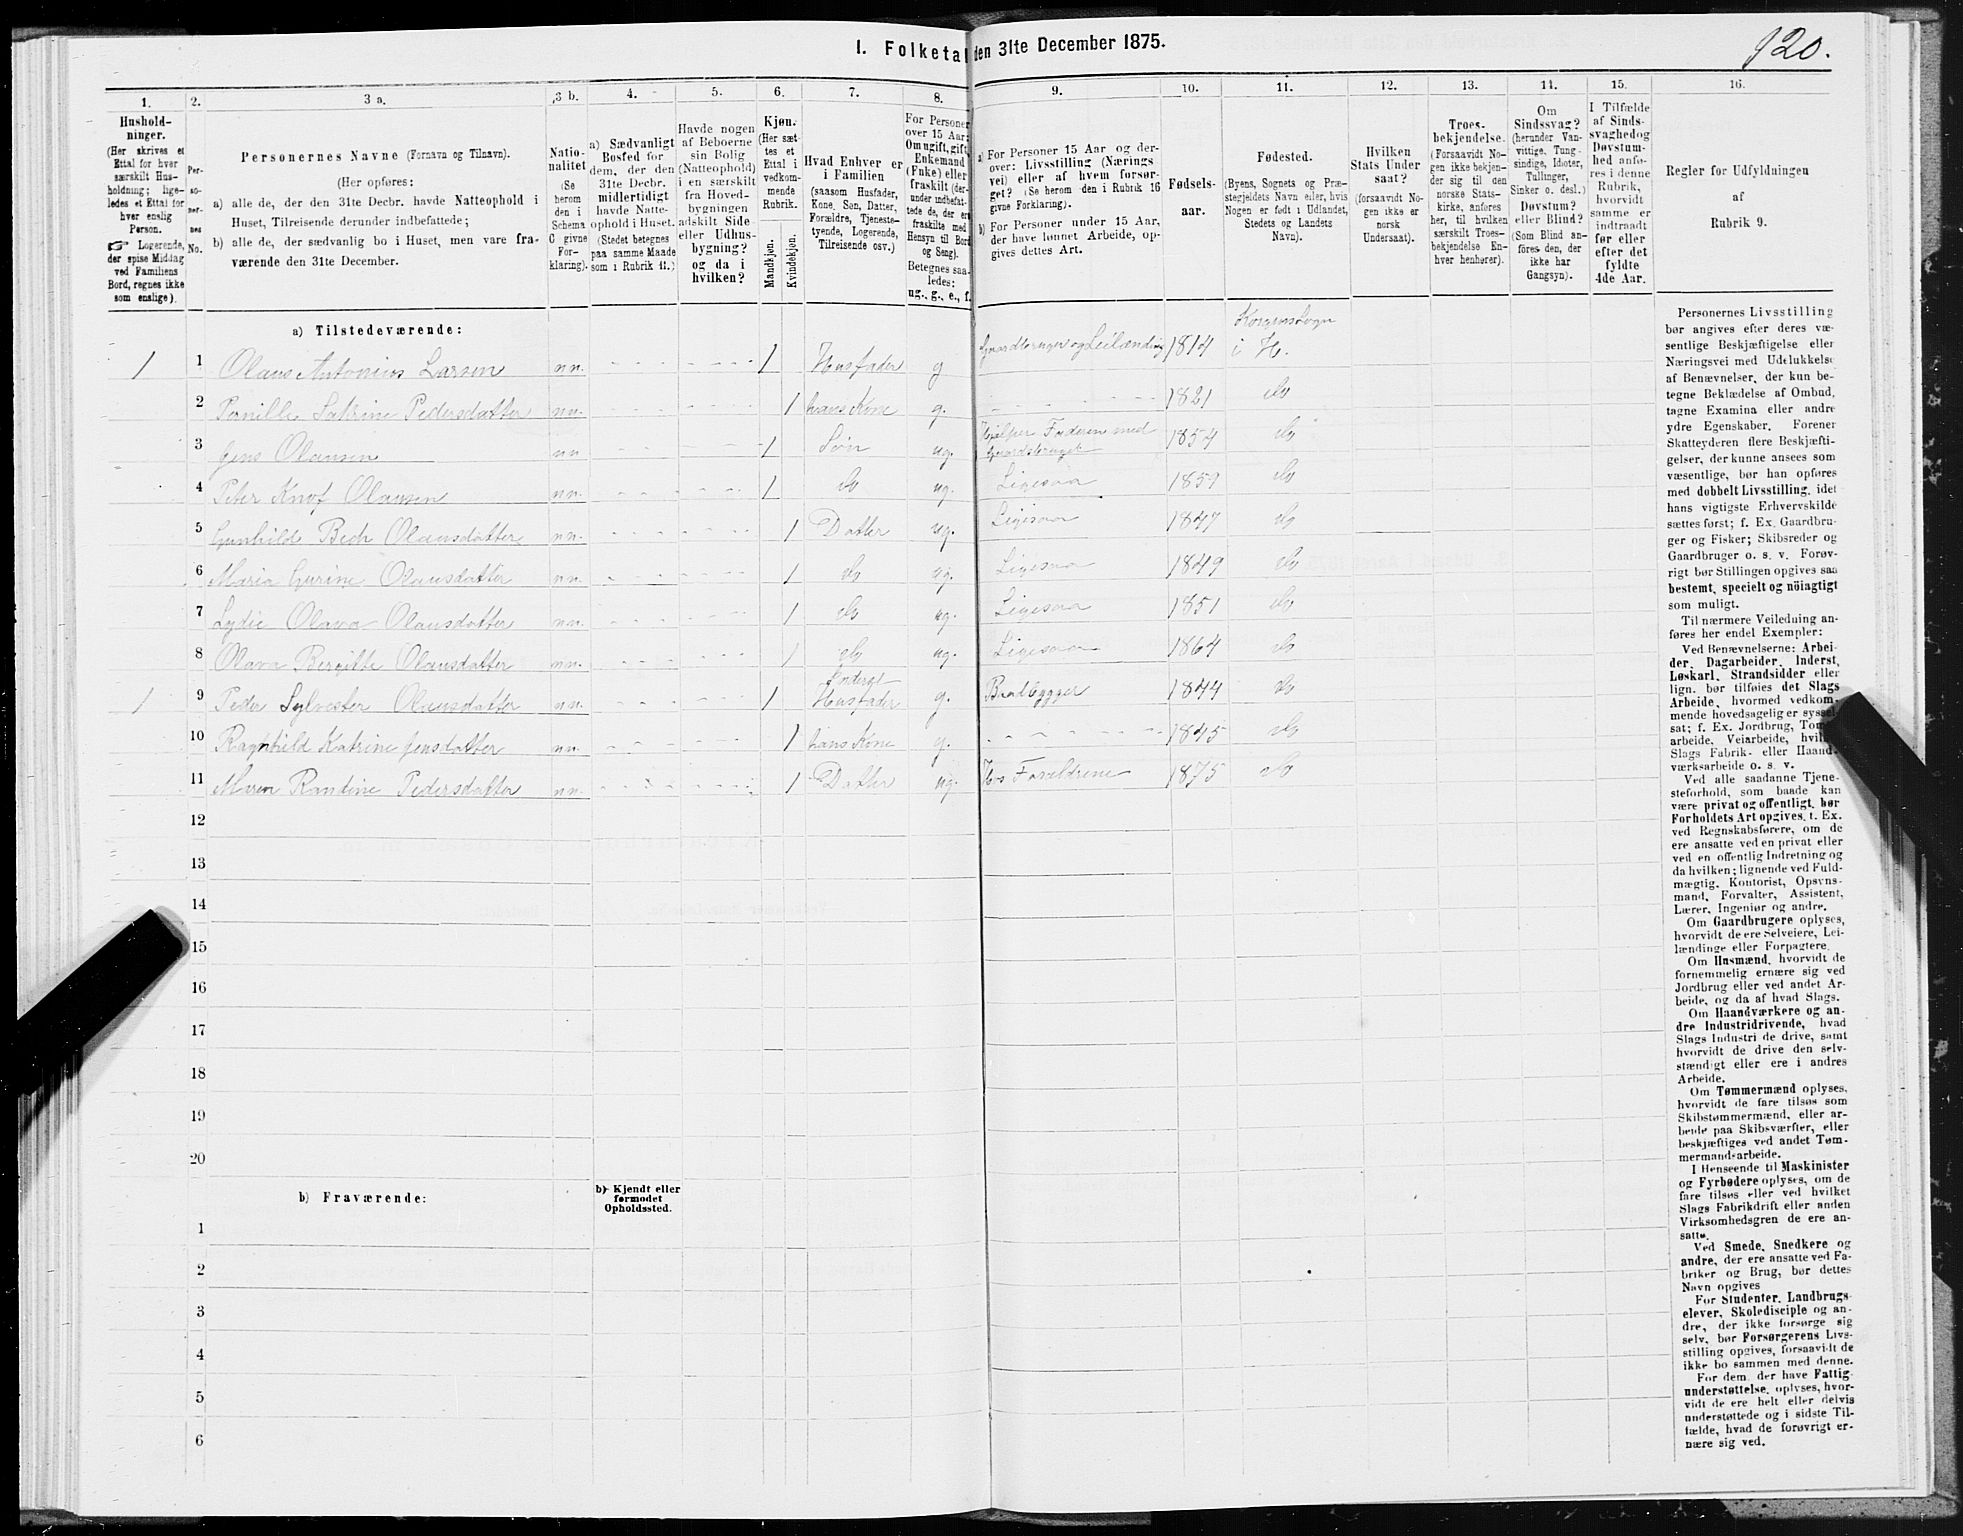 1. Folketal den 31te December 1875.
920.
1. 2. 3 a. 3 b. 4. 5. 6. 7. 8. 9. 10. 11. 12. 13. 14. 15. 16.
Hushold-
ninger.
(Her skrives et
Ettal for hver
særskilt Hus-
holdning; lige-
ledes et Ettal for
hver enslig
Person.
☞ Logerende,
der spise Middag
ved Familiens
Bord, regnes ikke
som enslige).
Per-
so-
ner-
nes
No.
Personernes Navne (Fornavn og Tilnavn).
(Her opføres:
a) alle de, der den 31te Decbr. havde Natteophold i
Huset, Tilreisende derunder indbefattede;
b) alle de, der sædvanlig bo i Huset, men vare fra-
værende den 31te December.
Natio-
nalitet
(Se
herom
den i
Schema
C givne
For-
klaring).
a) Sædvanligt
Bosted for
dem, der den
31te Decbr.
midlertidigt
havde Natte-
ophold i Huset.
(Stedet betegnes
paa samme Maade
som i Rubrik 11.)
Havde nogen
af Beboerne
sin Bolig
(Natteophold)
i en særskilt
fra Hoved-
bygningen
adskilt Side-
eller Udhus-
bygning?
og da i
hvilken?
Kjøn.
(Her sæt-
tes et
Ettal i
vedkom-
mende
Rubrik.
Mandkjøn.
Kvindekjøn.
Hvad Enhver er
i Familien
(saasom Husfader,
Kone, Søn, Datter,
Forældre, Tjeneste-
tyende, Logerende,
Tilreisende osv.)
For Personer
over 15 Aar:
Om ugift, gift,
Enkemand
(Enke) eller
fraskilt (der-
under indbefat-
tede de, der ere
fraskilte med
Hensyn til Bord
og Seng).
Betegnes saa-
ledes:
ug., g., e., f.
a) For Personer 15 Aar og der-
over: Livsstilling (Nærings-
vei) eller af hvem forsør-
get? (Se herom den i Rubrik 16
givne Forklaring).
b) For Personer under 15 Aar,
der have lønnet Arbeide, op-
gives dettes Art.
Fødsels-
aar.
Fødested.
(Byens, Sognets og Præ-
stegjeldets Navn eller, hvis
Nogen er født i Udlandet,
Stedets og Landets
Navn).
Hvilken
Stats Under-
saat?
(forsaavidt No-
gen ikke er
norsk
Undersaat).
Troes-
bekjendelse.
(Forsaavidt No-
gen ikke bekjen-
der sig til den
norske Stats-
kirke, anføres
her, til hvilken
særskilt Troes-
bekjendelse En-
hver henhører).
Om
Sindssvag?
(herunder Van-
vittige, Tung-
sindige, Idioter,
Tullinger,
Sinker o. desl.)
Døvstum?
eller Blind?
(Som Blind an-
føres den, der
ikke har
Gangsyn).
I Tilfælde
af Sinds-
svaghed og
Døvstum-
hed anfø-
res i denne
Rubrik,
hvorvidt
samme er
indtraadt
før eller
efter det
fyldte
4de Aar.
Regler for Udfyldningen
af
Rubrik 9.
a) Tilstedeværende:
1 1 Olaus Antonius Larsen nn. 1 Husfader g Gaardbruger og Leilænding 1814 Korgens Sogn i H.
2 Pernille Cathrine Pedersdatter nn. 1 hans Kone g. 1821 do
3 Jens Olausen nn 1 Søn ug. Hjælper Faderen med Gaardsbruget 1854 do
4 Peter Knof Olausen nn. 1 do ug. Ligesaa 1859 do
5 Gunhild Bech Olausdatter nn. 1 Datter ug. Ligesaa 1847 do
6 Maria Gurine Olausdatter nn. 1 do ug. Ligesaa 1849 do
7 Lydie Olava Olausdatter nn. 1 do ug. Ligesaa 1851 do
8 Olava Bergitte Olausdatter nn. 1 do ug. Ligesaa 1864 do
1 9 Peder Sylvester Olausdatter nn. 1 Husfader g. Baadbygger 1844 do
10 Raghild Katrine Jensdatter nn. 1 hans Kone g. 1845 do
11 Maren Randine Pedersdatter nn. 1 Datter ug. Hos Forældrene 1875 do
12
13
14
15
16
17
18
19
20
b) Fraværende:
b) Kjendt eller
formodet
Opholdssted.
1
2
3
4
5
6
Personernes Livsstilling
bør angives efter deres væ-
sentlige Beskjæftigelse eller
Næringsvei med Udelukkelse
af Benævnelser, der kun be-
tegne Beklædelse af Ombud,
tagne Examina eller andre
ydre Egenskaber. Forener
Skatteyderen flere Beskjæfti-
gelser, der kunne ansees som
væsentlige, bør han opføres
med dobbelt Livsstilling, idet
hans vigtigste Erhvervskilde
sættes først; f. Ex. Gaardbru-
ger og Fisker; Skibsreder og
Gaardbruger o. s. v. Forøv-
rigt bør Stillingen opgives saa
bestemt, specielt og nøiagtigt
som muligt.
Til nærmere Veiledning an-
føres her endel Exempler:
Ved Benævnelserne: Arbei-
der, Dagarbeider, Inderst,
Løskarl, Strandsidder eller
lign. bør tilføies det Slags
Arbeide, hvormed vedkom-
mende hovedsagelig er syssel-
sat; f. Ex. Jordbrug, Tom-
arbeide, Veiarbeide, hvil-
Slags Fabrik- eller Haand-
værksarbeide o. s. v.
Ved alle saadanne Tjene-
steforhold, som baade kan
være privat og offentligt, bør
Forholdets Art opgives, t. Ex.
ved Regnskabsførere, om de
ere ansatte ved en privat eller
ved en offentlig Indretning og
da hvilken; lignende ved Fuld-
mægtig, Kontorist, Opsyns-
mand, Forvalter, Assistent,
Lærer, Ingeniør og andre.
Om Gaardbrugere oplyses,
hvorvidt de ere Selveiere, Lei-
lændinge eller Forpagtere.
Om Husmænd, hvorvidt de
fornemmelig ernære sig ved
Jordbrug eller ved andet Ar-
beide, og da af hvad Slags.
Om Haandværkere og an-
dre Industridrivende, hvad
Slags Industri de drive, samt
hvorvidt de drive den selv-
stændigt eller ere i andres
Arbeide.
Om Tømmermænd oplyses,
hvorvidt de fare tilsøs som
Skibstømmermænd, eller ar-
beide paa Skibsværfter, eller
beskjæftiges ved andet Tøm-
mermandsarbeide.
I Henseende til Maskinister
og Fyrbødere oplyses, om de
fare tilsøs eller ved hvilket
Slags Fabrikdrift eller anden
Virksomhedsgren de ere an-
satte.
Ved Smede, Snedkere og
andre, der ere ansatte ved Fa-
briker og Brug, bør dettes
Navn opgives
For Studenter, Landbrugs-
elever, Skoledisciple og an-
dre, der ikke forsørge sig
selv, bør Forsørgerens Livs-
stilling opgives, forsaavidt de
ikke bo sammen med denne.
For dem, der have Fattig-
understøttelse, oplyses, hvor-
vidt de ere helt eller delvis
understøttede og i sidste Til-
fælde, hvad de forøvrigt er-
nære sig ved.